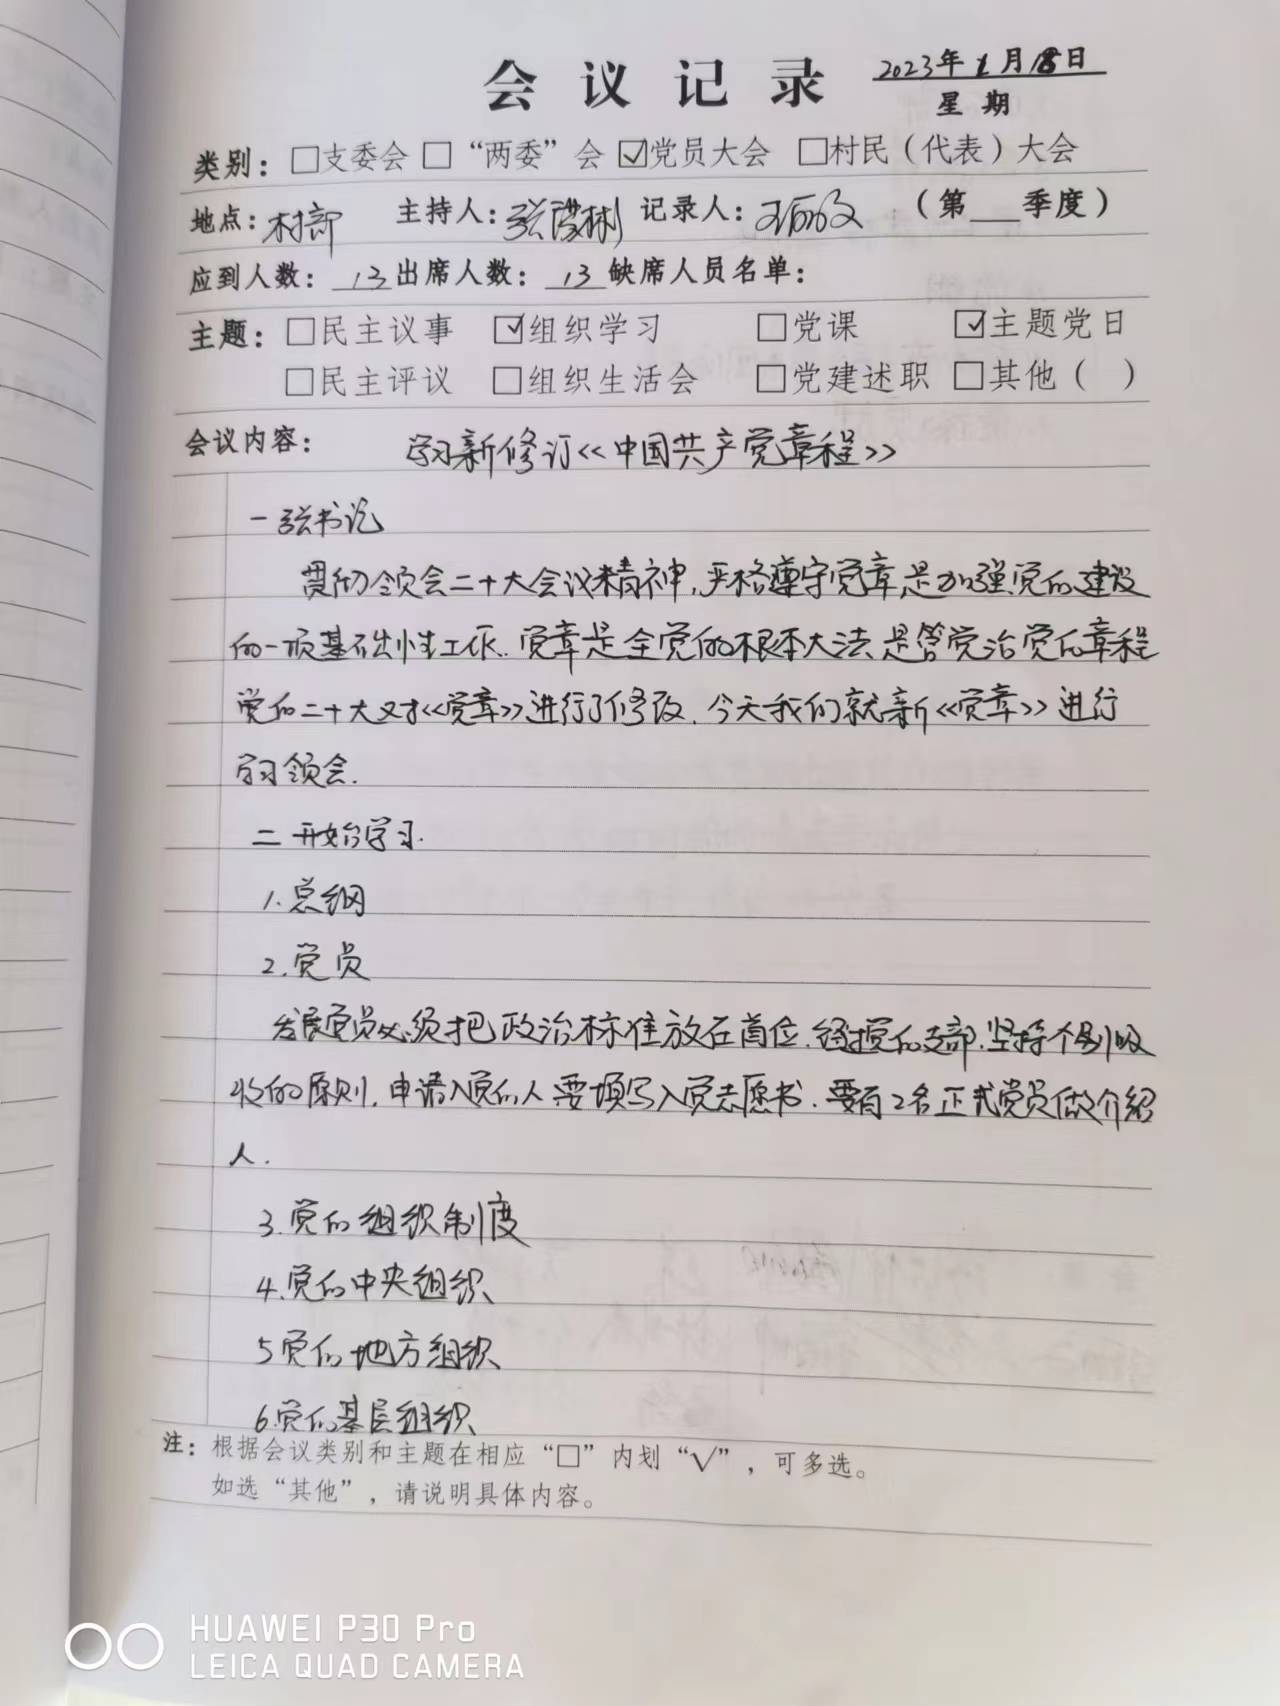 会议记录 2023年1月18日
星期
类别：□支委会 □“两委”会 ☑党员大会 □村民（代表）大会
地点：村部 主持人：张 彬 记录人：王丽文 （第__季度）
应到人数：13出席人数：13缺席人员名单：
主题：□民主议事 ☑组织学习 □党课 ☑主题党日
□民主评议 □组织生活会 □党建述职 □其他（ ）
会议内容： 学习新修订《中国共产党章程》
一 张书记
贯彻领会二十大会议精神,严格遵守党章是加强党的建设
的一项基础性工作.党章是全党的根本大法,是管党治党的章程
党的二十大又对《党章》进行了修改.今天我们就新《党章》进行
学习领会.
二 开始学习.
1.总纲
2.党员
发展党员必须把政治标准放在首位.经过党的支部.坚持个别吸
收的原则.申请入党的人要填写入党志愿书.要有2名正式党员做介绍
人.
3.党的组织制度
4.党的中央组织
5党的地方组织
6.党的基层组织
注：根据会议类别和主题在相应“□”内划“√”，可多选。
如选“其他”，请说明具体内容。
HUAWEI P30 Pro
LEICA QUAD CAMERA